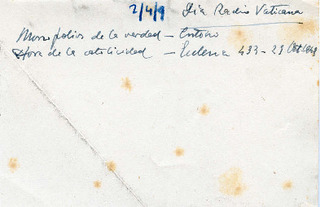 2/4/9 Día Radio Vaticana
Monopolios de la verdad — Entorno
Hora de la catolicidad — Ecclesia 433 - 29